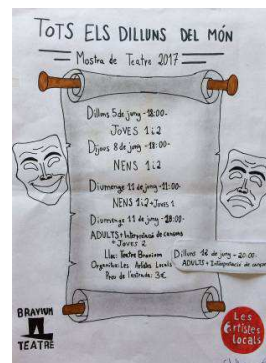 TOTS ELS DILLUNS DEL MÓN
Mostra de Teatre 2017
Dilluns 5 de juny - 18:00-
JOVES 1 i 2
Dijous 8 de juny - 18:00-
NENS 1 i 2
Diumenge 11 de juny - 11:00-
NENS 1 i 2 + Joves 1
Diumenge 11 de juny -
ADULTS + Interpretació de cançons
+ JOVES 2
Lloc: Teatre Bravium
Organitza: Les Artistes Locals
Preu de l'entrada: 3€
Dilluns de juny - 20:00-
ADULTS + Interpretació de
BRAVIUM
TEATRE
Les
Artistes
Locals